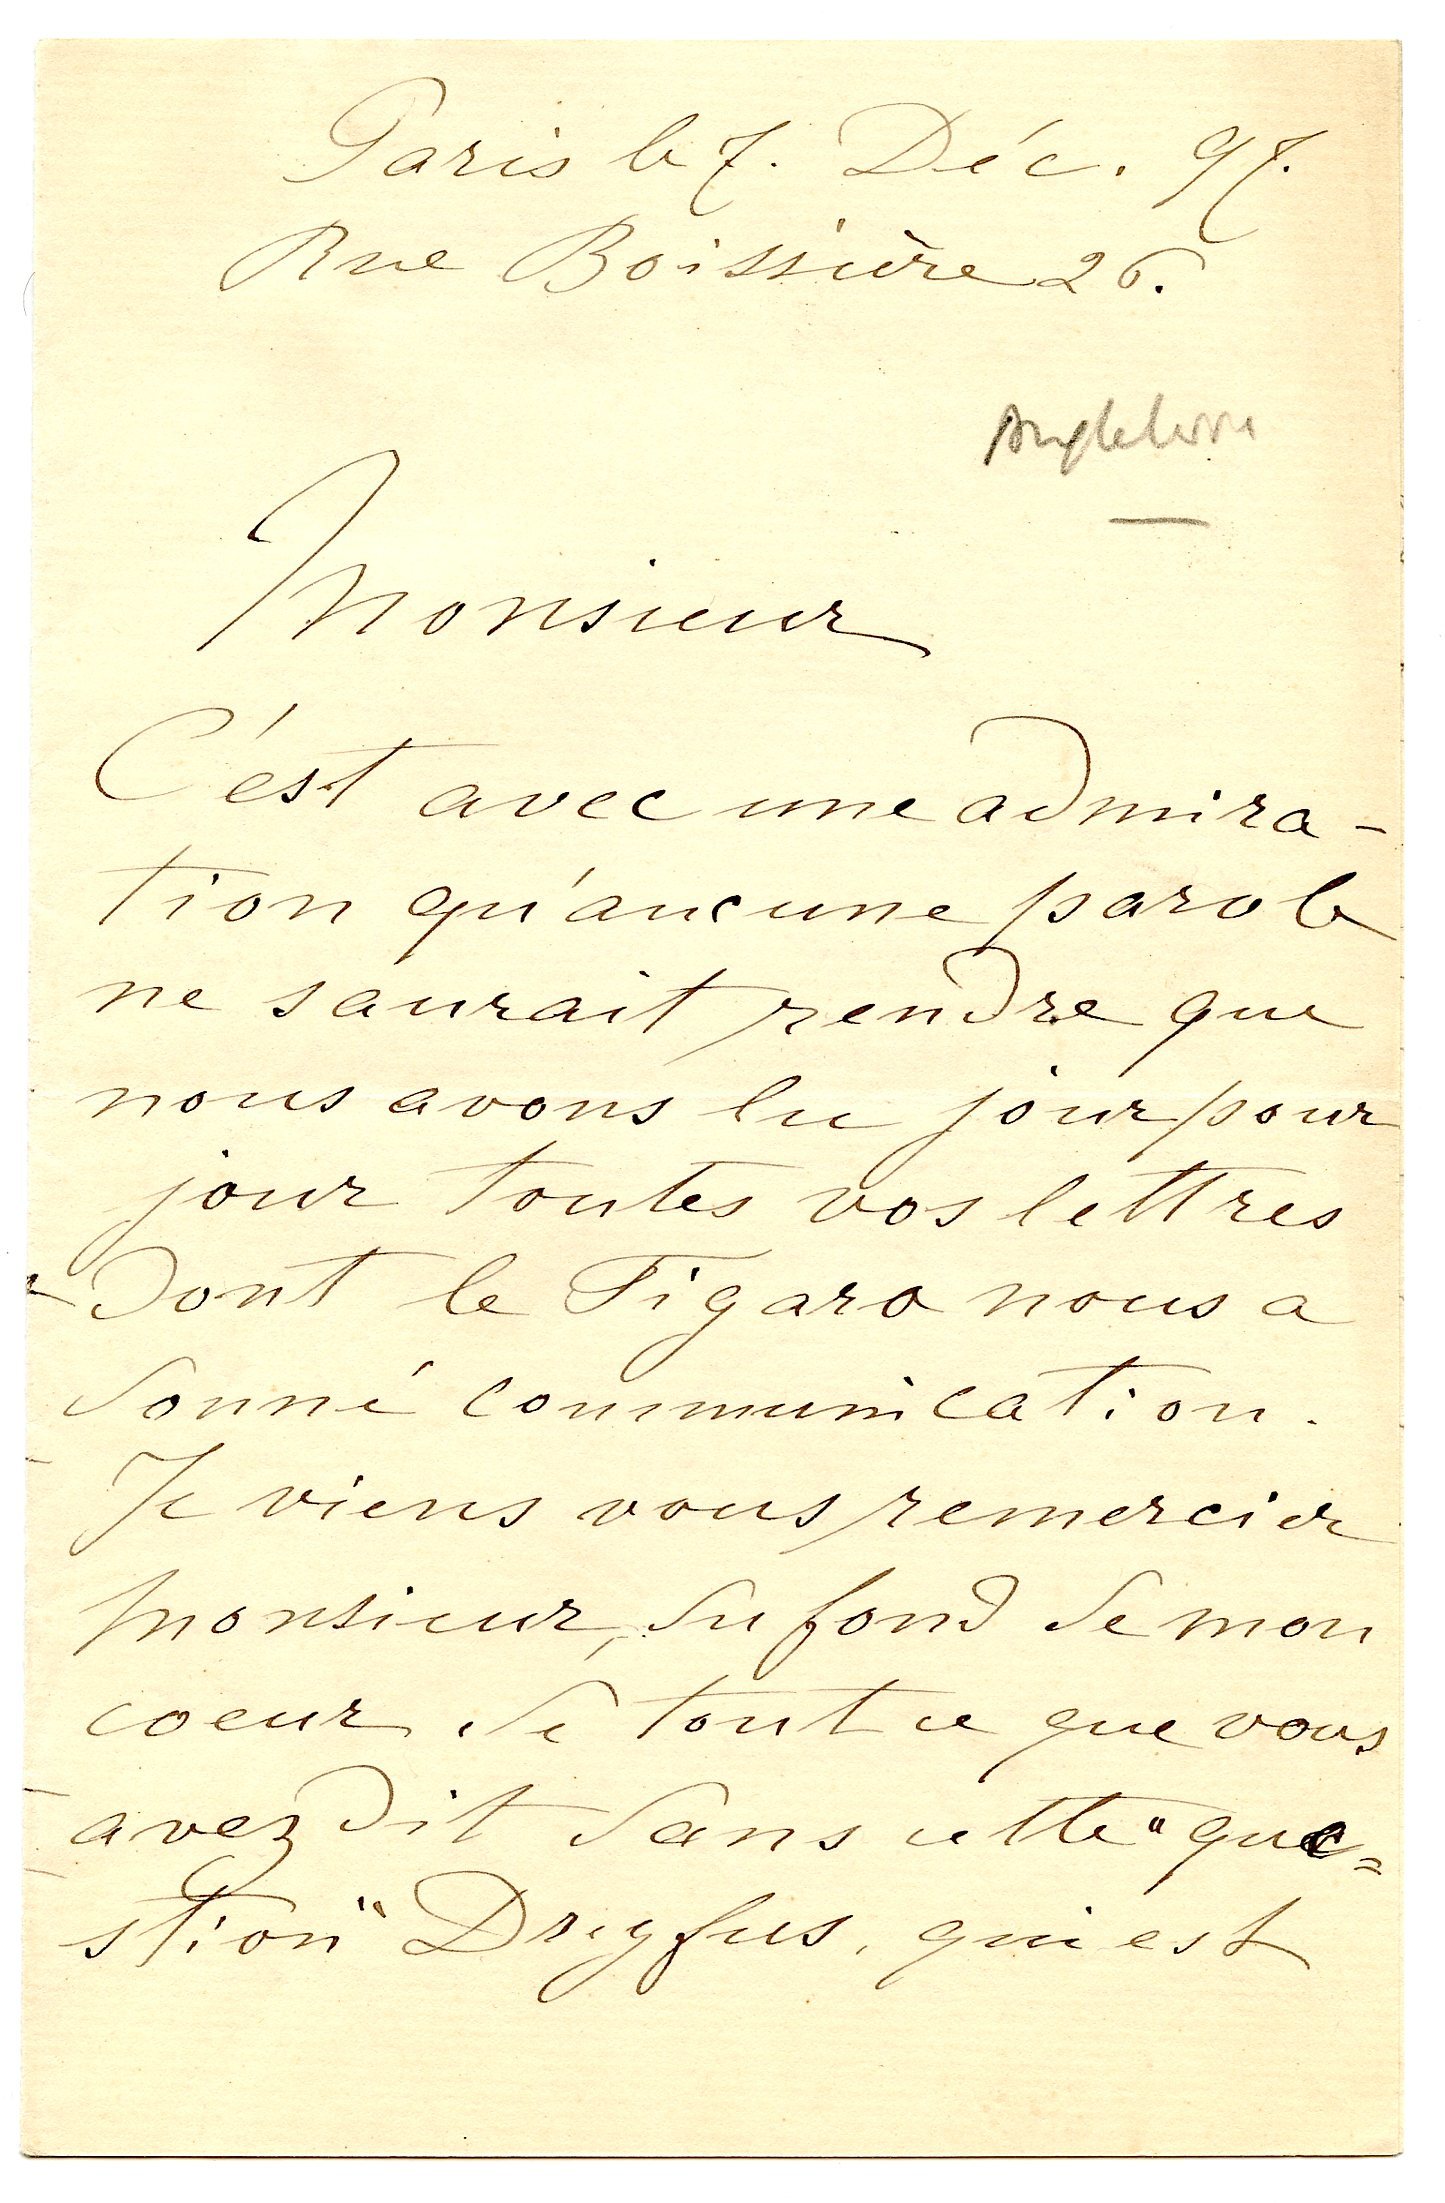 Paris le 7. Déc. 97.
Rue Boissière 26.
Angleterre
Monsieur
C'est avec une admira-
tion qu'aucune parole
ne saurait rendre que
nous avons lu jour pour
jour toutes vos lettres
dont le Figaro nous a
donné communication.
Je viens vous remercier
Monsieur, du fond de mon
coeur de tout ce que vous
avez dit dans cette "que=
stion" Dreyfus, qui est